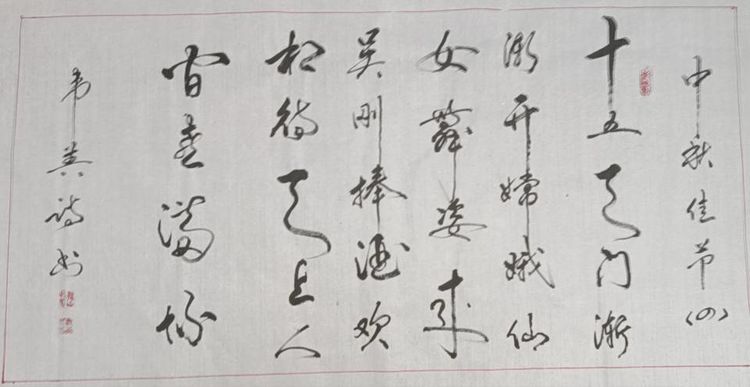 中秋佳节(四)
十五天门渐
渐开嫦娥仙
女舞姿来
吴刚捧酒欢
相待天上人
间喜满怀
韦诗书